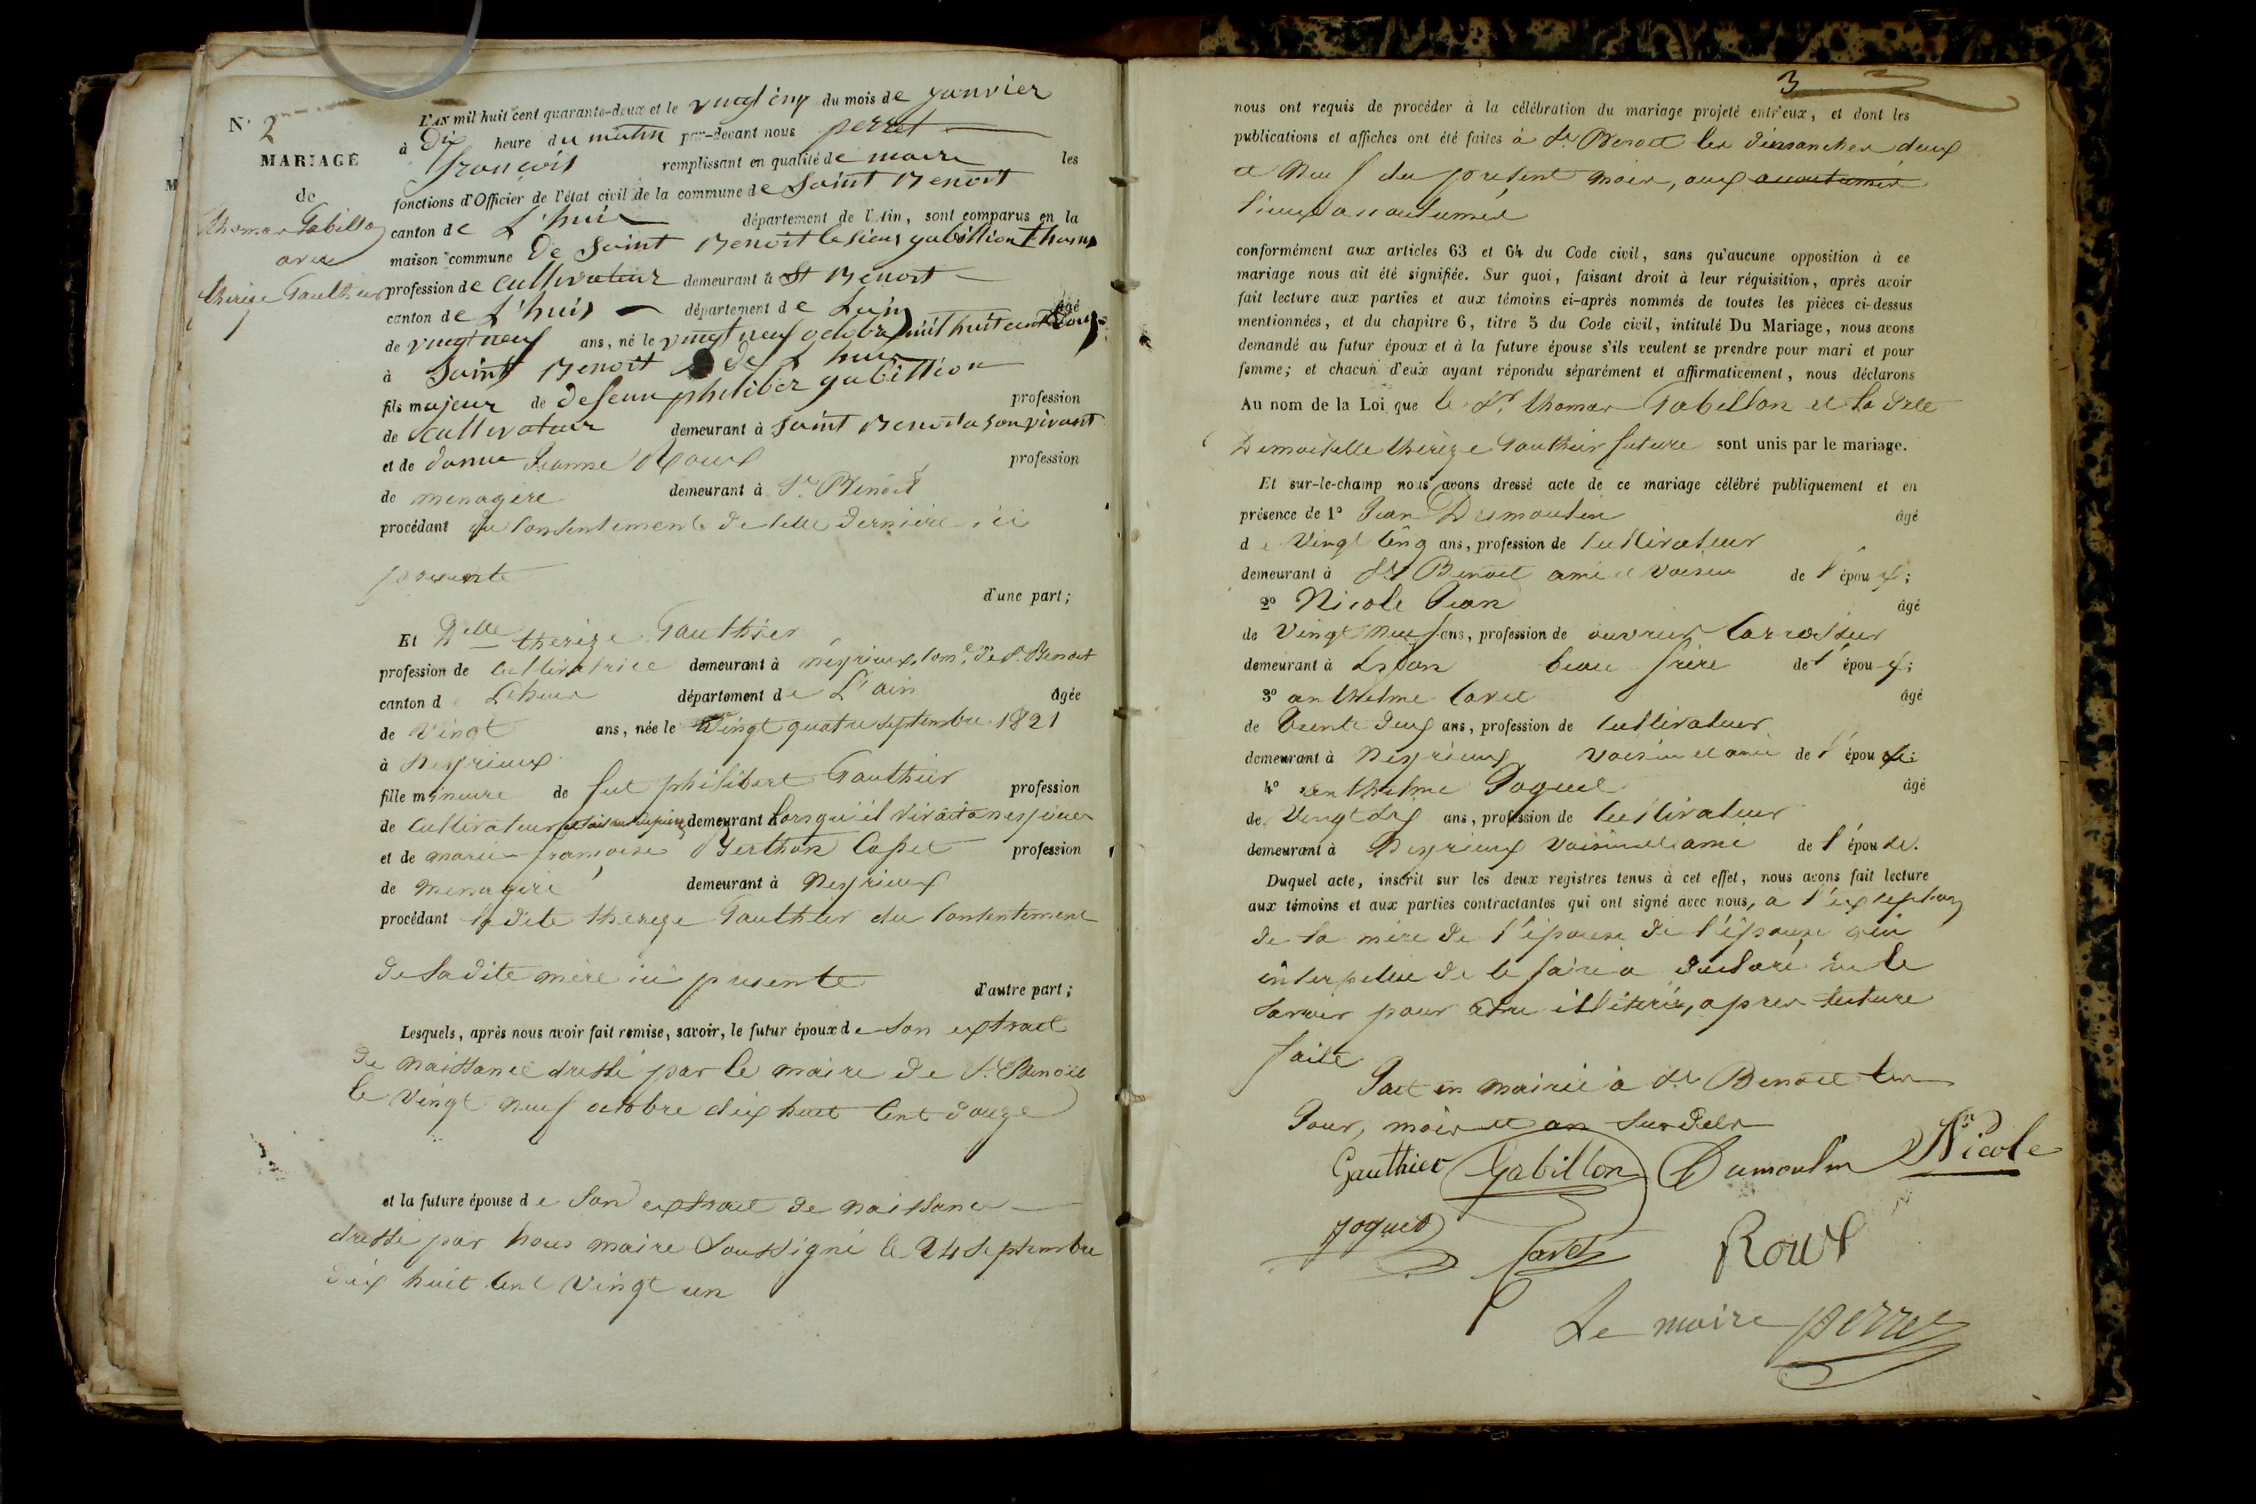 N.° 2
MARIAGE
de
thomas Gabillon
avec
thérèze Gauthier
L'AN mil huit cent quarante-deux et le vingt cinq du mois de janvier
à Dix heure du matin par-devant nous perret
françois remplissant en qualité de maire les
fonctions d'Officier de l'état civil de la commune de Saint Benoit
canton de L'huis département de l'Ain, sont comparus en la
maison commune De Saint Benoit le sieur gabillion Thomas
profession de cultivateur demeurant à St Benoit
canton de L'huis département de Lain âgé
de vingt neuf ans, né le vingt neuf octobre mil huit cent Douze
à Saint Benoit de L huis
fils majeur de defeun philiber gabillion profession
de cultivateur demeurant à Saint Benoit a son vivant
et de damme Jeanne Roux profession
de menagère demeurant à St Benoit
procédant du consentement de celle dernière ici
presente
d'une part;
Et Delle therèze Gauthier
profession de cultivatrice demeurant à neyrieux comne de St Benoit
canton de Lhuis département de L'ain âgée
de vingt ans, née le Vingt quatre septembre 1821
à Neyrieux
fille mineure de feu philibert Gauthier profession
de cultivateur demeurant à lorsqu'il vivait à neyrieux
et de marie françoise Berthon Caset profession
de menagère demeurant à Neyrieux
procédant la dite thereze Gauthier du consentement
de sadite mère ici presente
d'autre part;
Lesquels, après nous avoir fait remise, savoir, le futur époux de son extrait
de naissance dressé par le maire de St Benoit
le vingt neuf octobre dix huit cent douze
et la future épouse de son extrait de naissance
dressé par nous maire soussigné le 24 septembre
dix huit cent vingt un
3
nous ont requis de procéder à la célébration du mariage projeté entr'eux, et dont les
publications et affiches ont été faites à St Benoit les dimanches deux
et Neuf du présent mois, aux accoutumés
lieux accoutumés
conformément aux articles 63 et 64 du Code civil, sans qu'aucune opposition à ce
mariage nous ait été signifiée. Sur quoi, faisant droit à leur réquisition, après avoir
fait lecture aux parties et aux témoins ci-après nommés de toutes les pièces ci-dessus
mentionnées, et du chapitre 6, titre 5 du Code civil, intitulé Du Mariage, nous avons
demandé au futur époux et à la future épouse s'ils veulent se prendre pour mari et pour
femme; et chacun d'eux ayant répondu séparément et affirmativement, nous déclarons
Au nom de la Loi que le Sr thomas Gabillon et la dite
Demoiselle thérèze Gauthier future sont unis par le mariage.
Et sur-le-champ nous avons dressé acte de ce mariage célébré publiquement et en
présence de 1° Jean Dumoulin âgé
de Vingt cinq ans, profession de cultivateur
demeurant à St Benoit ami et voisin de l'époux;
2° Nicole Jean âgé
de Vingt neuf ans, profession de ouvrier carrossier
demeurant à Lyon beau frère de l'époux;
3° anthelme Cavet âgé
de trente deux ans, profession de cultivateur
demeurant à Neyrieux voisin et ami de l'épouse;
4° anthelme Joguet âgé
de Vingt six ans, profession de cultivateur
demeurant à Neyrieux voisin et ami de l'épouse.
Duquel acte, inscrit sur les deux registres tenus à cet effet, nous avons fait lecture
aux témoins et aux parties contractantes qui ont signé avec nous, à l'exception
de la mère de l'épouse de l'épouse qui
interpellée de le faire a declaré ne le
savoir pour être illiterée, apres lecture
faite
Fait en mairie à St Benoit les
Jour, mois et an susdits
Gauthier Gabillon Dumoulin Nicole
Joguet Cavet Roux
Le maire perret